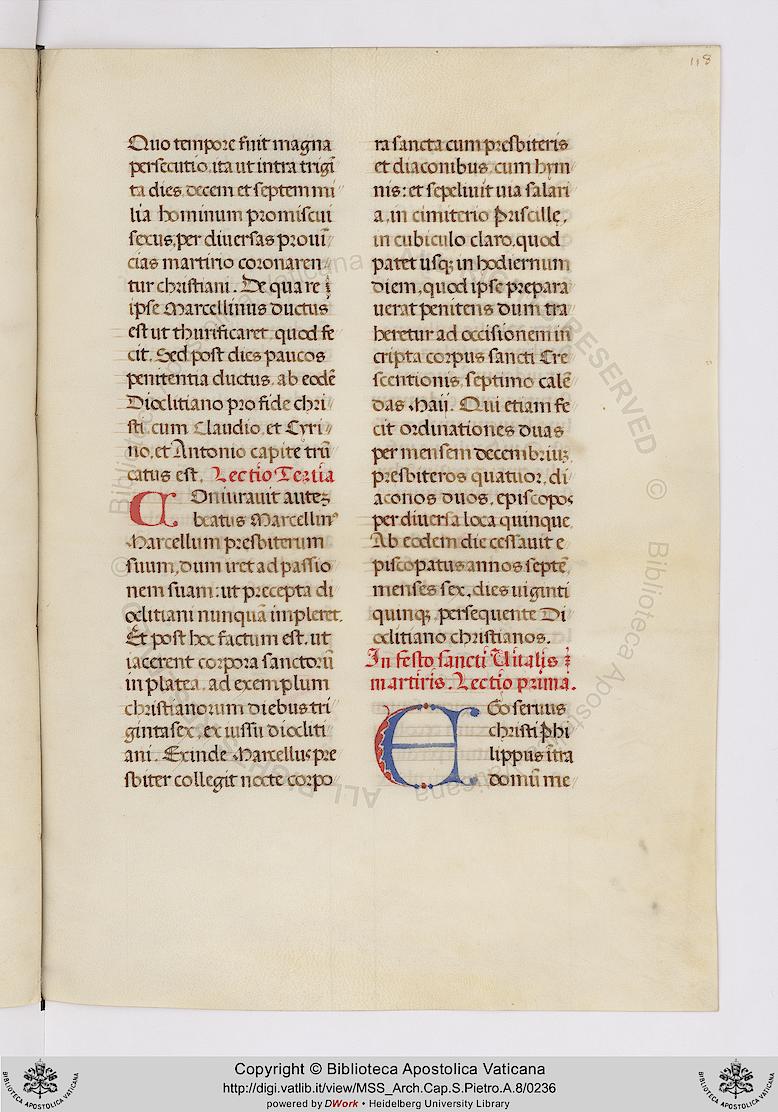 118
Quo tempore fuit magna
persecutio, ita ut intra trigī
ta dies, decem et septem mi
lia hominum promiscui
sexus, per diuersas prouī
cias martirio coronaren
tur christiani. De qua re ⁊
ipse Marcellinus ductus
est ut thurificaret, quod fe
cit. Sed post dies paucos
penitentia ductus, ab eodē
Dioclitiano pro fide chri
sti cum Claudio, et Cyri
no, et Antonio capite trū
catus est. Lectio Tertia
Coniurauit autez
beatus Marcellinꝰ
Marcellum presbiterum
suum, dum iret ad passio
nem suam: ut precepta di
oclitiani nunquā impleret.
Et post hoc factum est, ut
iacerent corpora sanctorū
in platea, ad exemplum
christianorum diebus tri
ginta sex, ex iussu diocliti
ani. Exinde Marcellus pre
sbiter collegit nocte corpo
ra sancta cum presbiteris
et diaconibus, cum hym
nis: et sepeliuit uia salari
a, in cimiterio Priscille,
in cubiculo claro, quod
patet usqꝫ in hodiernum
diem, quod ipse prepara
uerat penitens dum tra
heretur ad occisionem in
cripta corpus sancti Cre
scentionis, septimo calē
das Maii. Qui etiam fe
cit ordinationes duas
per mensem decembriuꝫ,
presbiteros quatuor, di
aconos duos, episcopos
per diuersa loca quinque.
Ab eodem die cessauit e
piscopatus annos septē
menses sex, dies uiginti
quinqꝫ, persequente Di
oclitiano christianos.
In festo sancti Uitalis ⁊
martiris. Lectio prima.
Ego seruus
christi Phi
lippus ītra
domū me
Copyright © Biblioteca Apostolica Vaticana
http://digi.vatlib.it/view/MSS_Arch.Cap.S.Pietro.A.8/0236
powered by DWork • Heidelberg University Library
BIBLIOTECA APOSTOLICA VATICANA
BIBLIOTECA APOSTOLICA VATICANA